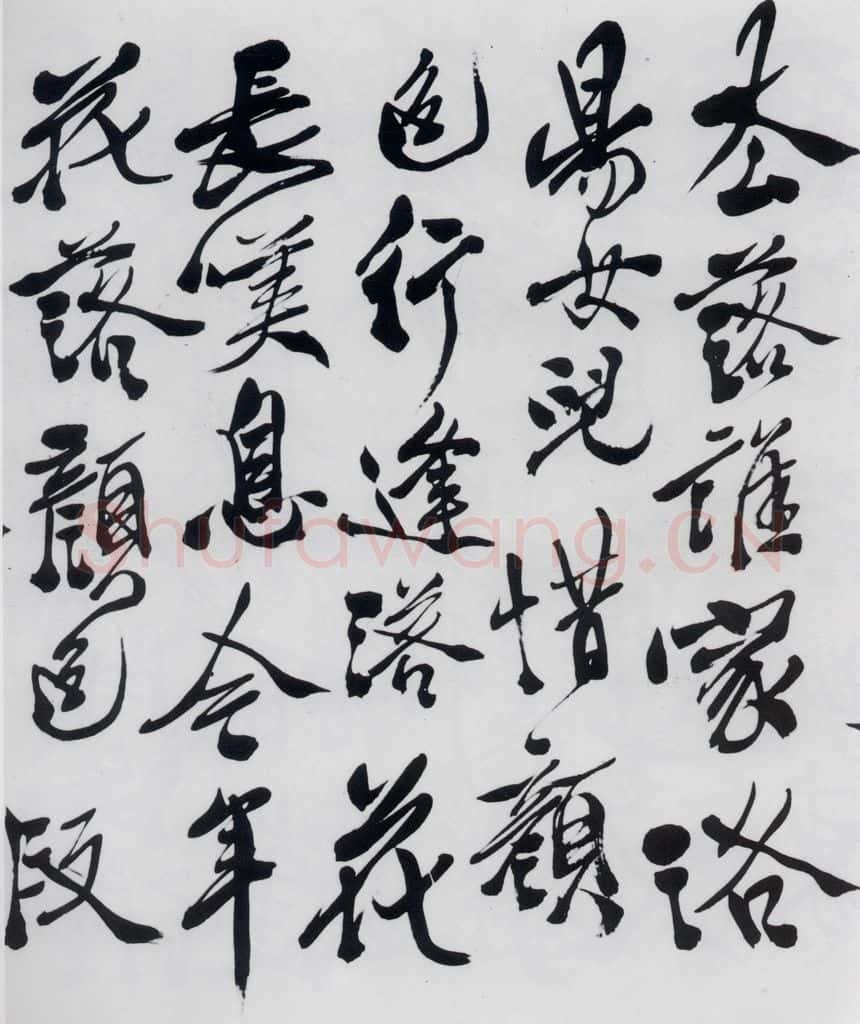 去落誰家洛
陽女兒惜顏
色行逢落花
長嘆息今年
花落顏色改
Shufawang.CN